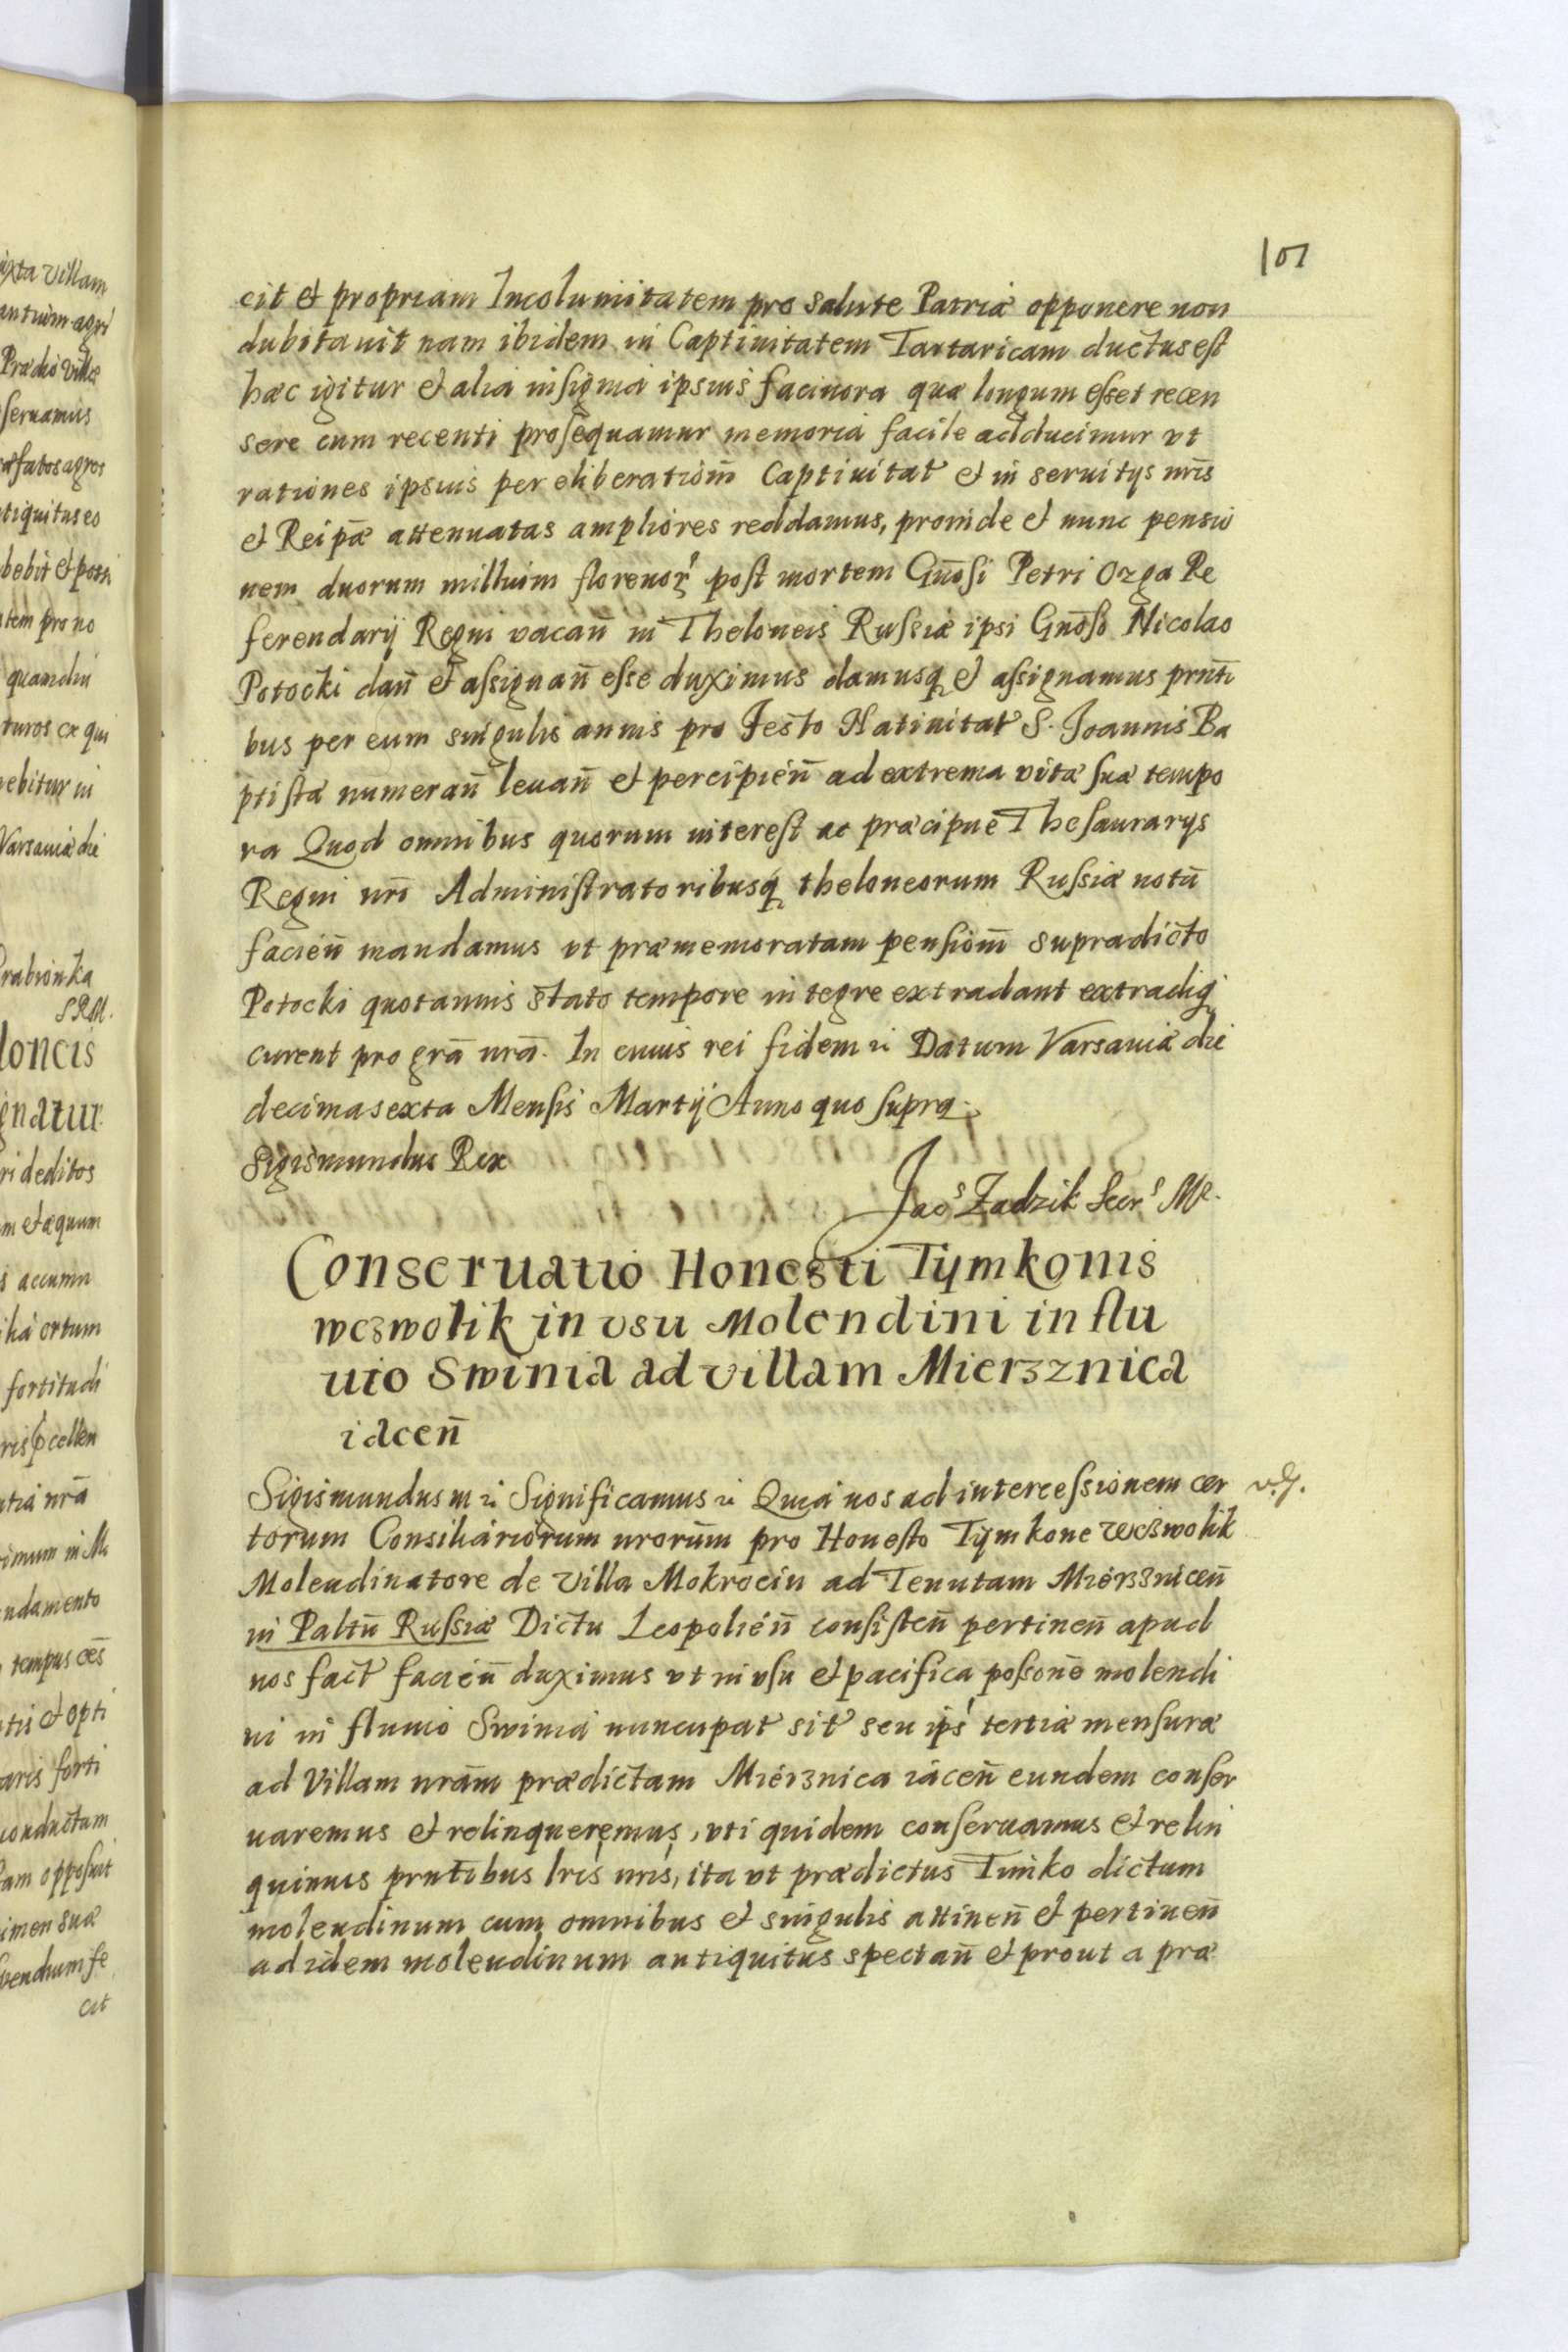 101
cit et propriam Incolumitatem pro salute Patriæ opponere non
dubitauit nam ibidem in Captiuitatem Tartaricam ductus est
hæc igitur et alia insignia ipsius facinora quæ longum esset recen
sere cum recenti prosequamur memoria facile adducimur vt
rationes ipsius per eliberatiom̄ Captiuitat et in seruitys nr̄is
et Reipæ attenuatas ampliores reddamus, proinde et nunc pensio
nem duorum millium florenor post mortem Gn̄osi Petri Ozga Re
ferendarÿ Regni vacan̄ in Theloneis Russiæ ipsi Gn̄oso Nicolao
Potocki dan̄ et assignan̄ esse duximus damusq et assignamus prn̄ti
bus per eum singulis annis pro Festo Natiuitat S. Joannis Ba
ptistæ numeran̄ leuan̄ et percipien̄ ad extrema vitæ suæ tempo
ra Quod omnibus quorum interest ac præcipue Thesaurarys
Regni nr̄i Administratoribusq theloneorum Russiæ notū
facien̄ mandamus vt præmemoratam pensiom̄ supradicto
Potocki quotannis stato tempore integre extradant extradiq
curent pro grā nrā. In cuius rei fidem Datum Varsauiæ die
decimasexta Mensis Martÿ Anno quo supra.
Sigismundus Rex
Jac⁹ Zadzik Secr⁹ MR.
Conseruatio Honesti Tÿmkonis
wezwolik in vsu Molendini in flu
uio Swinia ad villam Mierzznica
iacen̄
Sigismundus III Significamus Quia nos ad intercessionem cer
torum Consiliariorum nrorūm pro Honesto Tÿmkone wezwolik
Molendinatore de Villa Mokrocin ad Tenutam Mierzznicen̄
in Paltū Russiæ Dictu Leopolien̄ consisten̄ pertinen̄ apud
nos fact facien̄ duximus vt in vsu et pacifica possonē molendi
ni in fluuio Swinia nuncupat sit seu ips tertiæ mensuræ
ad Villam nrām prædictam Mierznica iacen̄ eundem conser
uaremus et relinqueremus, vti quidem conseruamus et relin
quimus prn̄tibus lris nris, ita vt prædictus Timko dictum
molendinum cum omnibus et singulis attinen̄ et pertinen̄
ad idem molendinum antiquitus spectan̄ et prout a præ